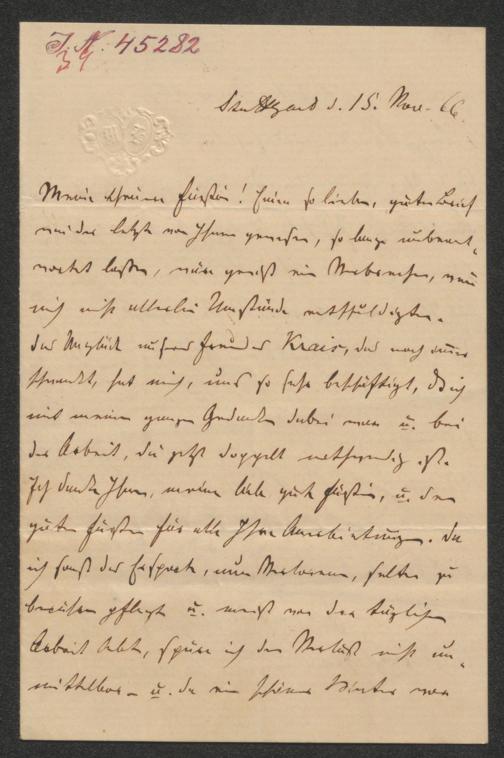 J. N. 45282
39
Stuttgard d. 15. Nov. 66.
Meine theure Fürstin! Einen so lieben, guten Brief
wie der letzte von Ihnen gewesen, so lange unbeant-
wortet lassen, wäre gewiß ein Verbrechen, wenn
mich nicht allerlei Umstände entschuldigten.
Das Unglück unseres Freundes Krais, das noch immer
schwankt, hat mich, uns so sehr beschäftigt, daß ich
mit meinen ganzen Gedanken dabei war u. bei
der Arbeit, die jetzt doppelt nothwendig ist.
Ich danke Ihnen, meine liebe gute Fürstin, u. dem
guten Fürsten für alle Ihre Anerbietungen. Da
ich sonst das Ersparte, nun Verlorene, selten zu
berühren pflegte u. meist von der täglichen
Arbeit lebte, spüre ich den Verlust nicht un-
mittelbar – u. da ein schöner Winter vor